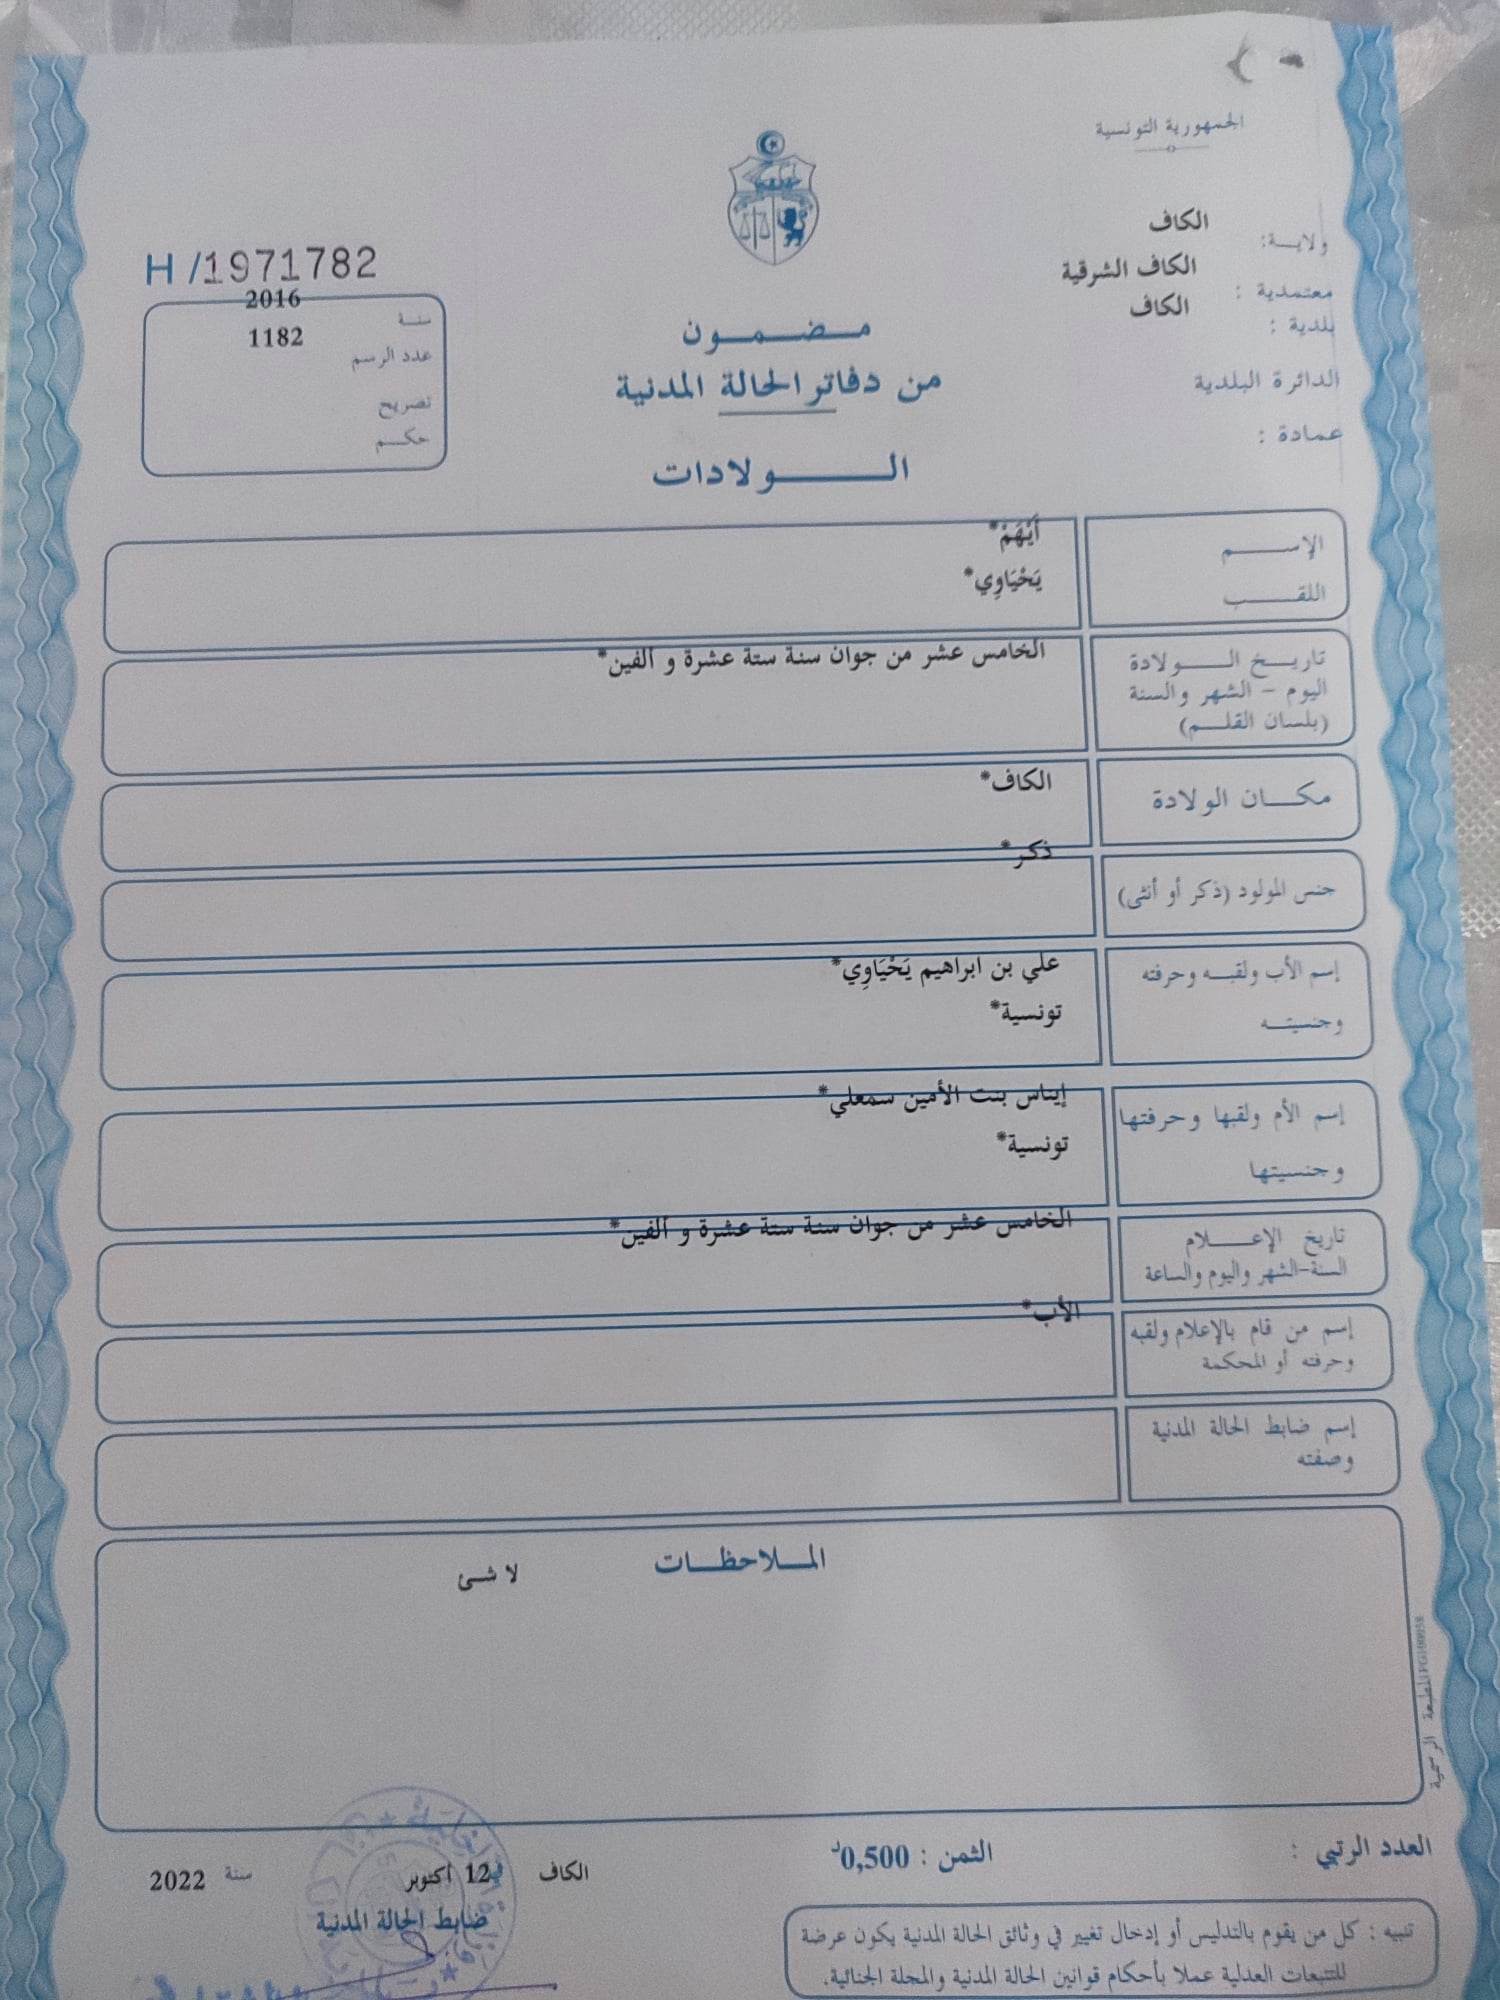 الجمهورية التونسية
ولاية: الكاف
معتمدية : الكاف الشرقية
بلدية : الكاف
الدائرة البلدية
عمادة :
مضمون
من دفاتر الحالة المدنية
الولادات
H /1971782
سنة 2016
عدد الرسم 1182
تصريح
حكم
الإسم أَيْهَمْ*
اللقب يَحْيَاوِي*
تاريخ الولادة الخامس عشر من جوان سنة ستة عشرة و ألفين*
اليوم - الشهر والسنة
(بلسان القلم)
مكان الولادة الكاف*
جنس المولود (ذكر أو أنثى) ذكر*
إسم الأب ولقبه وحرفته علي بن ابراهيم يَحْيَاوِي*
وجنسيته تونسية*
إسم الأم ولقبها وحرفتها إيناس بنت الأمين سمعلي*
وجنسيتها تونسية*
تاريخ الإعلام الخامس عشر من جوان سنة ستة عشرة و ألفين*
السنة-الشهر واليوم والساعة
إسم من قام بالإعلام ولقبه الأب*
وحرفته أو المحكمة
إسم ضابط الحالة المدنية
وصفته
الملاحظات
لا شئ
المطبعة الرسمية
العدد الرتبي :
الثمن : 0,500د
الكاف 12 أكتوبر سنة 2022
ضابط الحالة المدنية
تنبيه : كل من يقوم بالتدليس أو إدخال تغيير في وثائق الحالة المدنية يكون عرضة
للتتبعات العدلية عملا بأحكام قوانين الحالة المدنية والمجلة الجنائية.